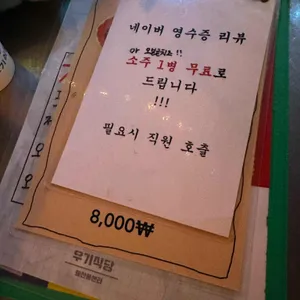 네이버 영수증 리뷰
소주 1병 무료로
드립니다
!!!
필요시 직원 호출
8,000₩
무기식당